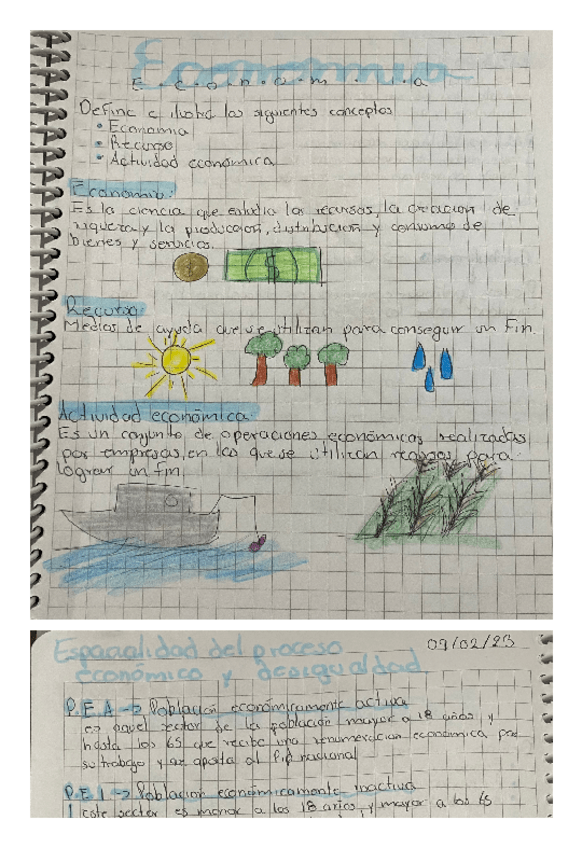 Economía
E c o n o m i a
Define e ilustra los siguientes conceptos
• Economia
• Recurso
• Actividad económica
Economia.
Es la ciencia que estudia los recursos, la creacion de
riqueza y la produccion, distribucion y consumo de
bienes y servicios.
$
$
Recurso
Medios de ayuda que se utilizan para conseguir un fin.
Actividad económica.
Es un conjunto de operaciones económicas realizadas
por empresas, en las que se utilizan recursos para
lograr un fin.
Espacialidad del proceso
económico y desigualdad
09/02/23
P.E.A -> Población económicamente activa
es aquel sector de la población mayor a 18 años y
hasta los 65 que recibe una remuneracion económica por
su trabajo y que aporta al Pib nacional
P.E.I -> Población económicamente inactiva
este sector es menor a los 18 años y mayor a los 65